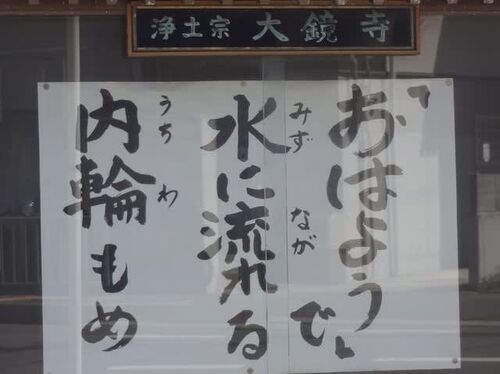 浄土宗 大鏡寺
「おはよう」で
水に流れる
みず なが
内輪もめ
うちわ